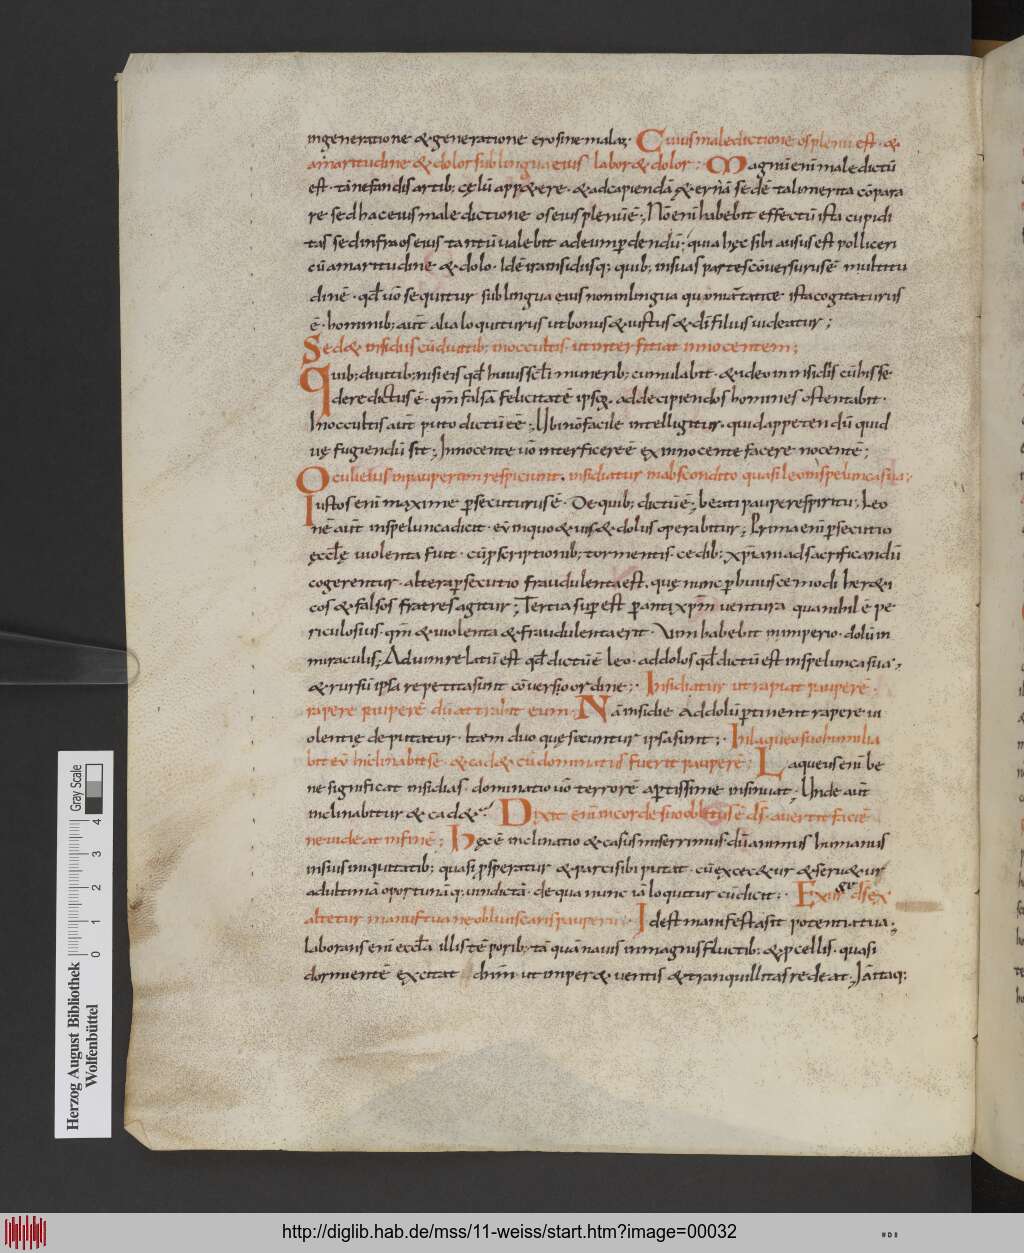 ingeneratione & generatione erosine malo; Cuius maledictione os plenū est · &
amaritudine & dolor sub lingua eius labor & dolor; Magnū enī maledictū
est · tā nefandis artib; cęlū app&ere · & ad capiendā & ernā sedē talū merita cōpara
re sed hac eius maledictione os eius plenū ē; Nō enī habebit effectū ista cupidi
tas sed in fra os eius tantū valebit ad eum pdendū; quia hęc sibi ausus est polliceri
cū amaritudine & dolo · Idē ira insidiisq; quib; in suas partes cōversurus ē multitu
dinē · qđ uō sequitur sub lingua eius non in lingua quoniā tatice ista cogitaturus
ē · hominib; aut̄ alia loquiturus ut bonus & iustus & dī filius uideatur;
Sed& insidiis cū diuitib; in occultis · ut interficiat innocentem;
Quib; diuitib; nisi eis qđ huius sc̄li munerib; cumulabit · & ideo in insidiis cū his se
dere dictus ē · qm̄ falsā felicitatē ipsoꝝ · ad decipiendos homines ostentabit ·
In occultis aut̄ puto dictū eē; Ubi nō facile intelligitur · quid appetendū quid
ue fugiendū sit; Innocentē uō interficere ē ex innocente facere nocentē;
Oculi eius in pauperem respiciunt · insidiatur in abscondito quasi leo in spelunca sua;
Iustos enī maxime psecuturus ē · De quib; dictū ē; beati pauperes spiritu; Leo
nē aut̄ in spelunca dicit · eū in quo & uis & dolus operabitur; Prima enī psecutio
ęccl̄ę uiolenta fuit · cū pscriptionib; tormentis · cedib; xpīani ad sacrificandū
cogerentur · altera psecutio fraudulenta est · quę nunc p huiuscemodi her&i
cos & falsos fratres agitur; Tertia sup est p antixpm̄ ventura qua nihil ē pe
riculosius · qm̄ & uiolenta & fraudulenta erit · Vim habebit in imperio · dolū in
miraculis; Ad uim relatū est qđ dictū ē leo · ad dolos qđ dictū est in spelunca sua;
& rursū ipsa repetita sunt cōverso ordine; Insidiatur ut rapiat pauperē ·
rapere pauperē dū attrahit eum · Nā insidie ad dolū ptinent rapere ui
olentię deputatur · Itaem duo quę secuntur ipsa sunt; In laqueo suo humilia
bit eū inclinabit se · & cad& cū dominatus fuerit pauperē; Laqueus enī be
ne significat insidias · dominatio uō terrorē aptissime insinuat; Unde aut̄
inclinabitur & cad& · Dixit enī in corde suo oblitus ē dš · auertit faciē
ne uideat in finē; Hęc ē inclinatio & casus miserrimus dū animus humanus
in suis iniquitatib; quasi psperatur & parci sibi putat · cū excec&ur & seru&ur
ad ultimā oportunāq; uindictā · de qua nunc iā loquitur cū dicit; Exsurge dš ex
altetur manus tua ne obliuiscaris pauperū; Id est manifesta sit potentia tua;
Laborans enī eccl̄a illis tēporib; tā quā nauis in magnis fluctib; & pcellis · quasi
dormientē excitat dnm̄ · ut imper& ventis & tranquillitas redeat · Iā itaq;
Herzog August Bibliothek
Wolfenbüttel
Gray Scale
0 1 2 3 4
http://diglib.hab.de/mss/11-weiss/start.htm?image=00032